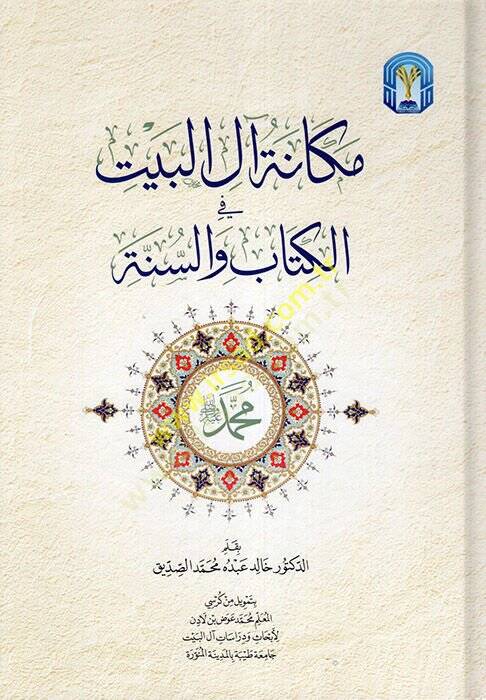 مَكَانَةُ آلِ البَيْتِ
فِي
الكِتَابِ وَالسُّنَّةِ
مُحَمَّد ﷺ
بِقَلَم
الدكتور خالد عبده محمد الصديق
بتمويل من كرسي
المعلم محمد عوض بن لادن
لأبحاث ودراسات آل البيت
جامعة طيبة بالمدينة المنورة